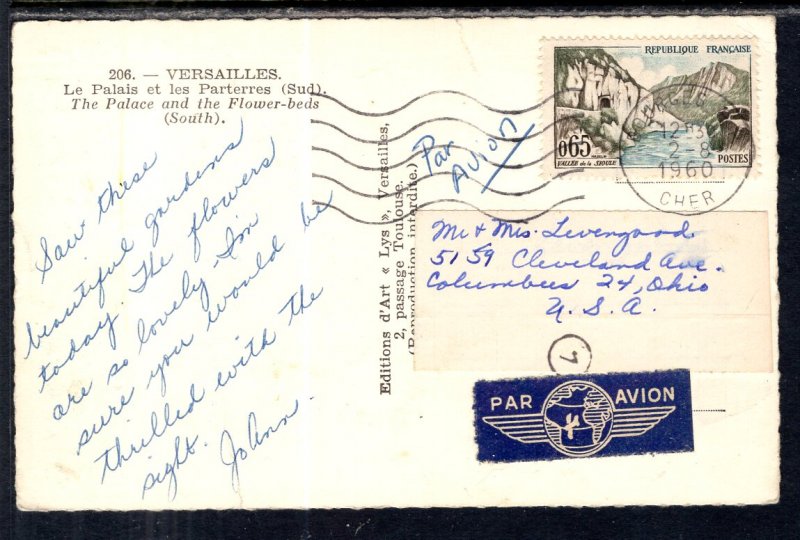 206. — VERSAILLES.
Le Palais et les Parterres (Sud).
The Palace and the Flower-beds
(South).
Saw these
beautiful gardens
today. The flowers
are so lovely. I'm
sure you would be
thrilled with the
sight. JoAnn.
Editions d'Art « Lys », Versailles,
2, passage Toulouse.
(Reproduction interdite.)
Par
Avion
REPUBLIQUE FRANÇAISE
0,65
VALLÉE de la SIOULE
POSTES
12H
2-8
1960
CHER
Mr & Mrs. Livengood
5159 Cleveland Ave.
Columbus 24, Ohio
U. S. A.
7
PAR AVION